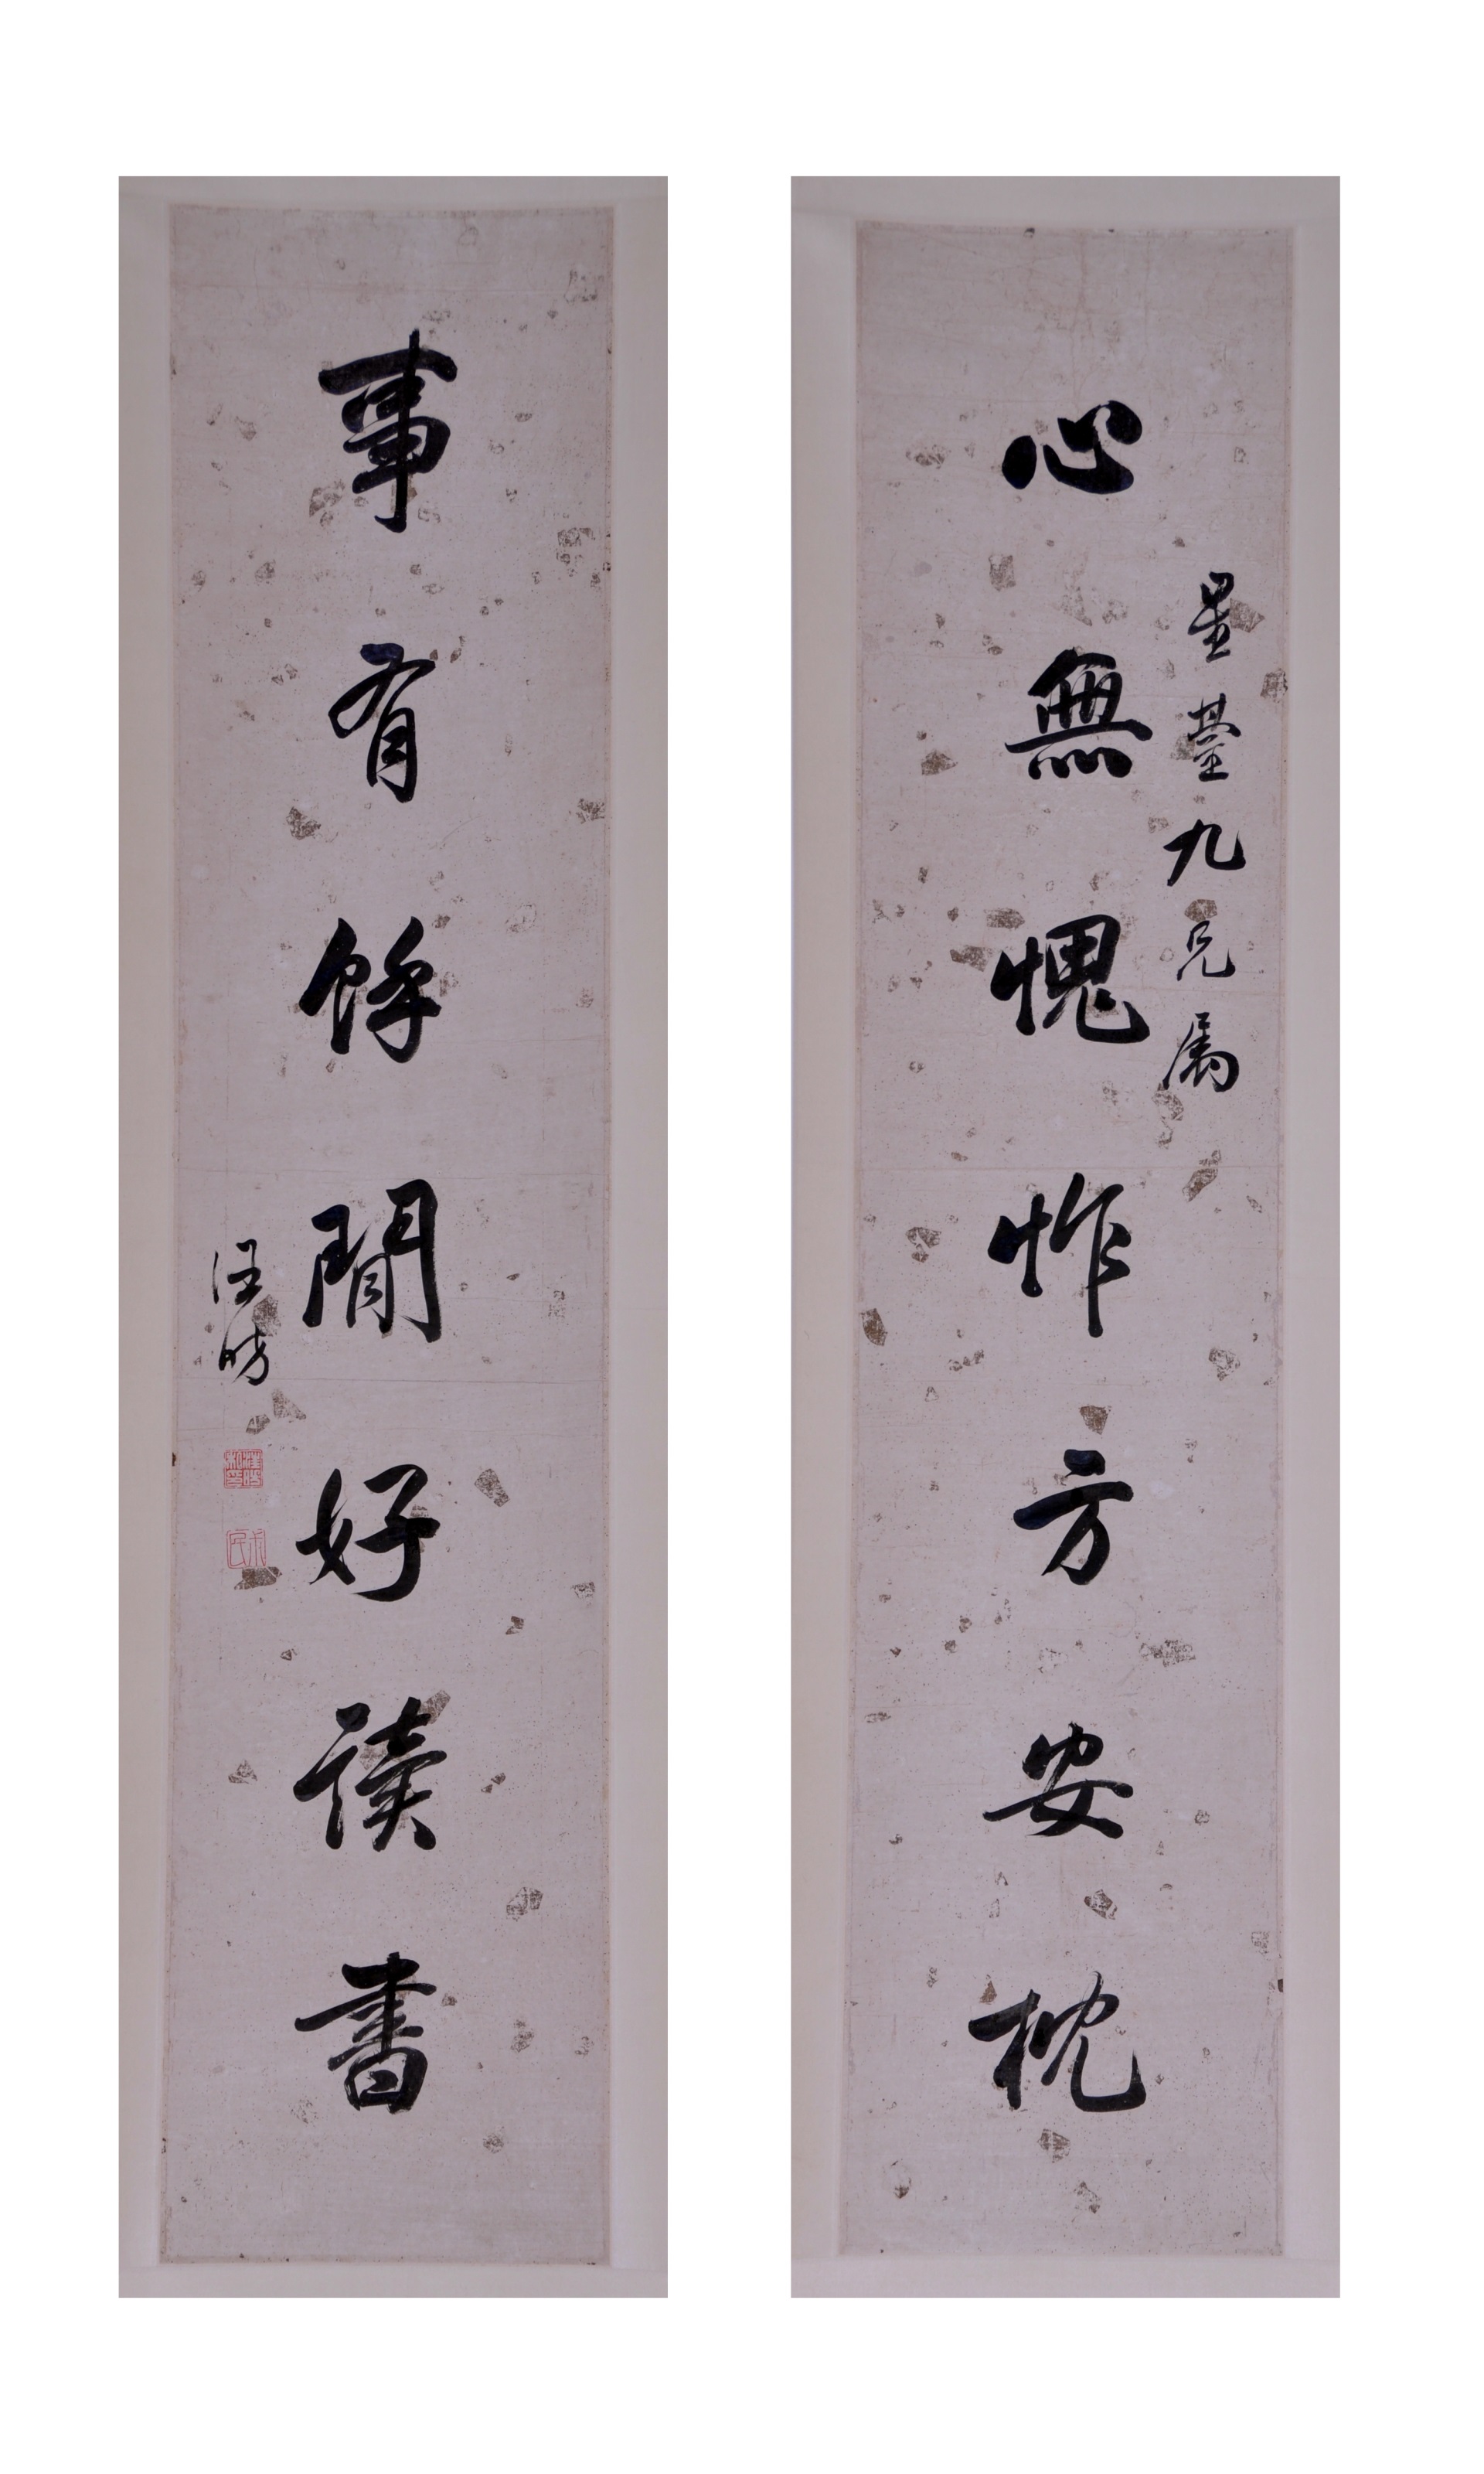 星臺九兄属
心無愧怍方安枕
事有餘閒好讀書
汪昉